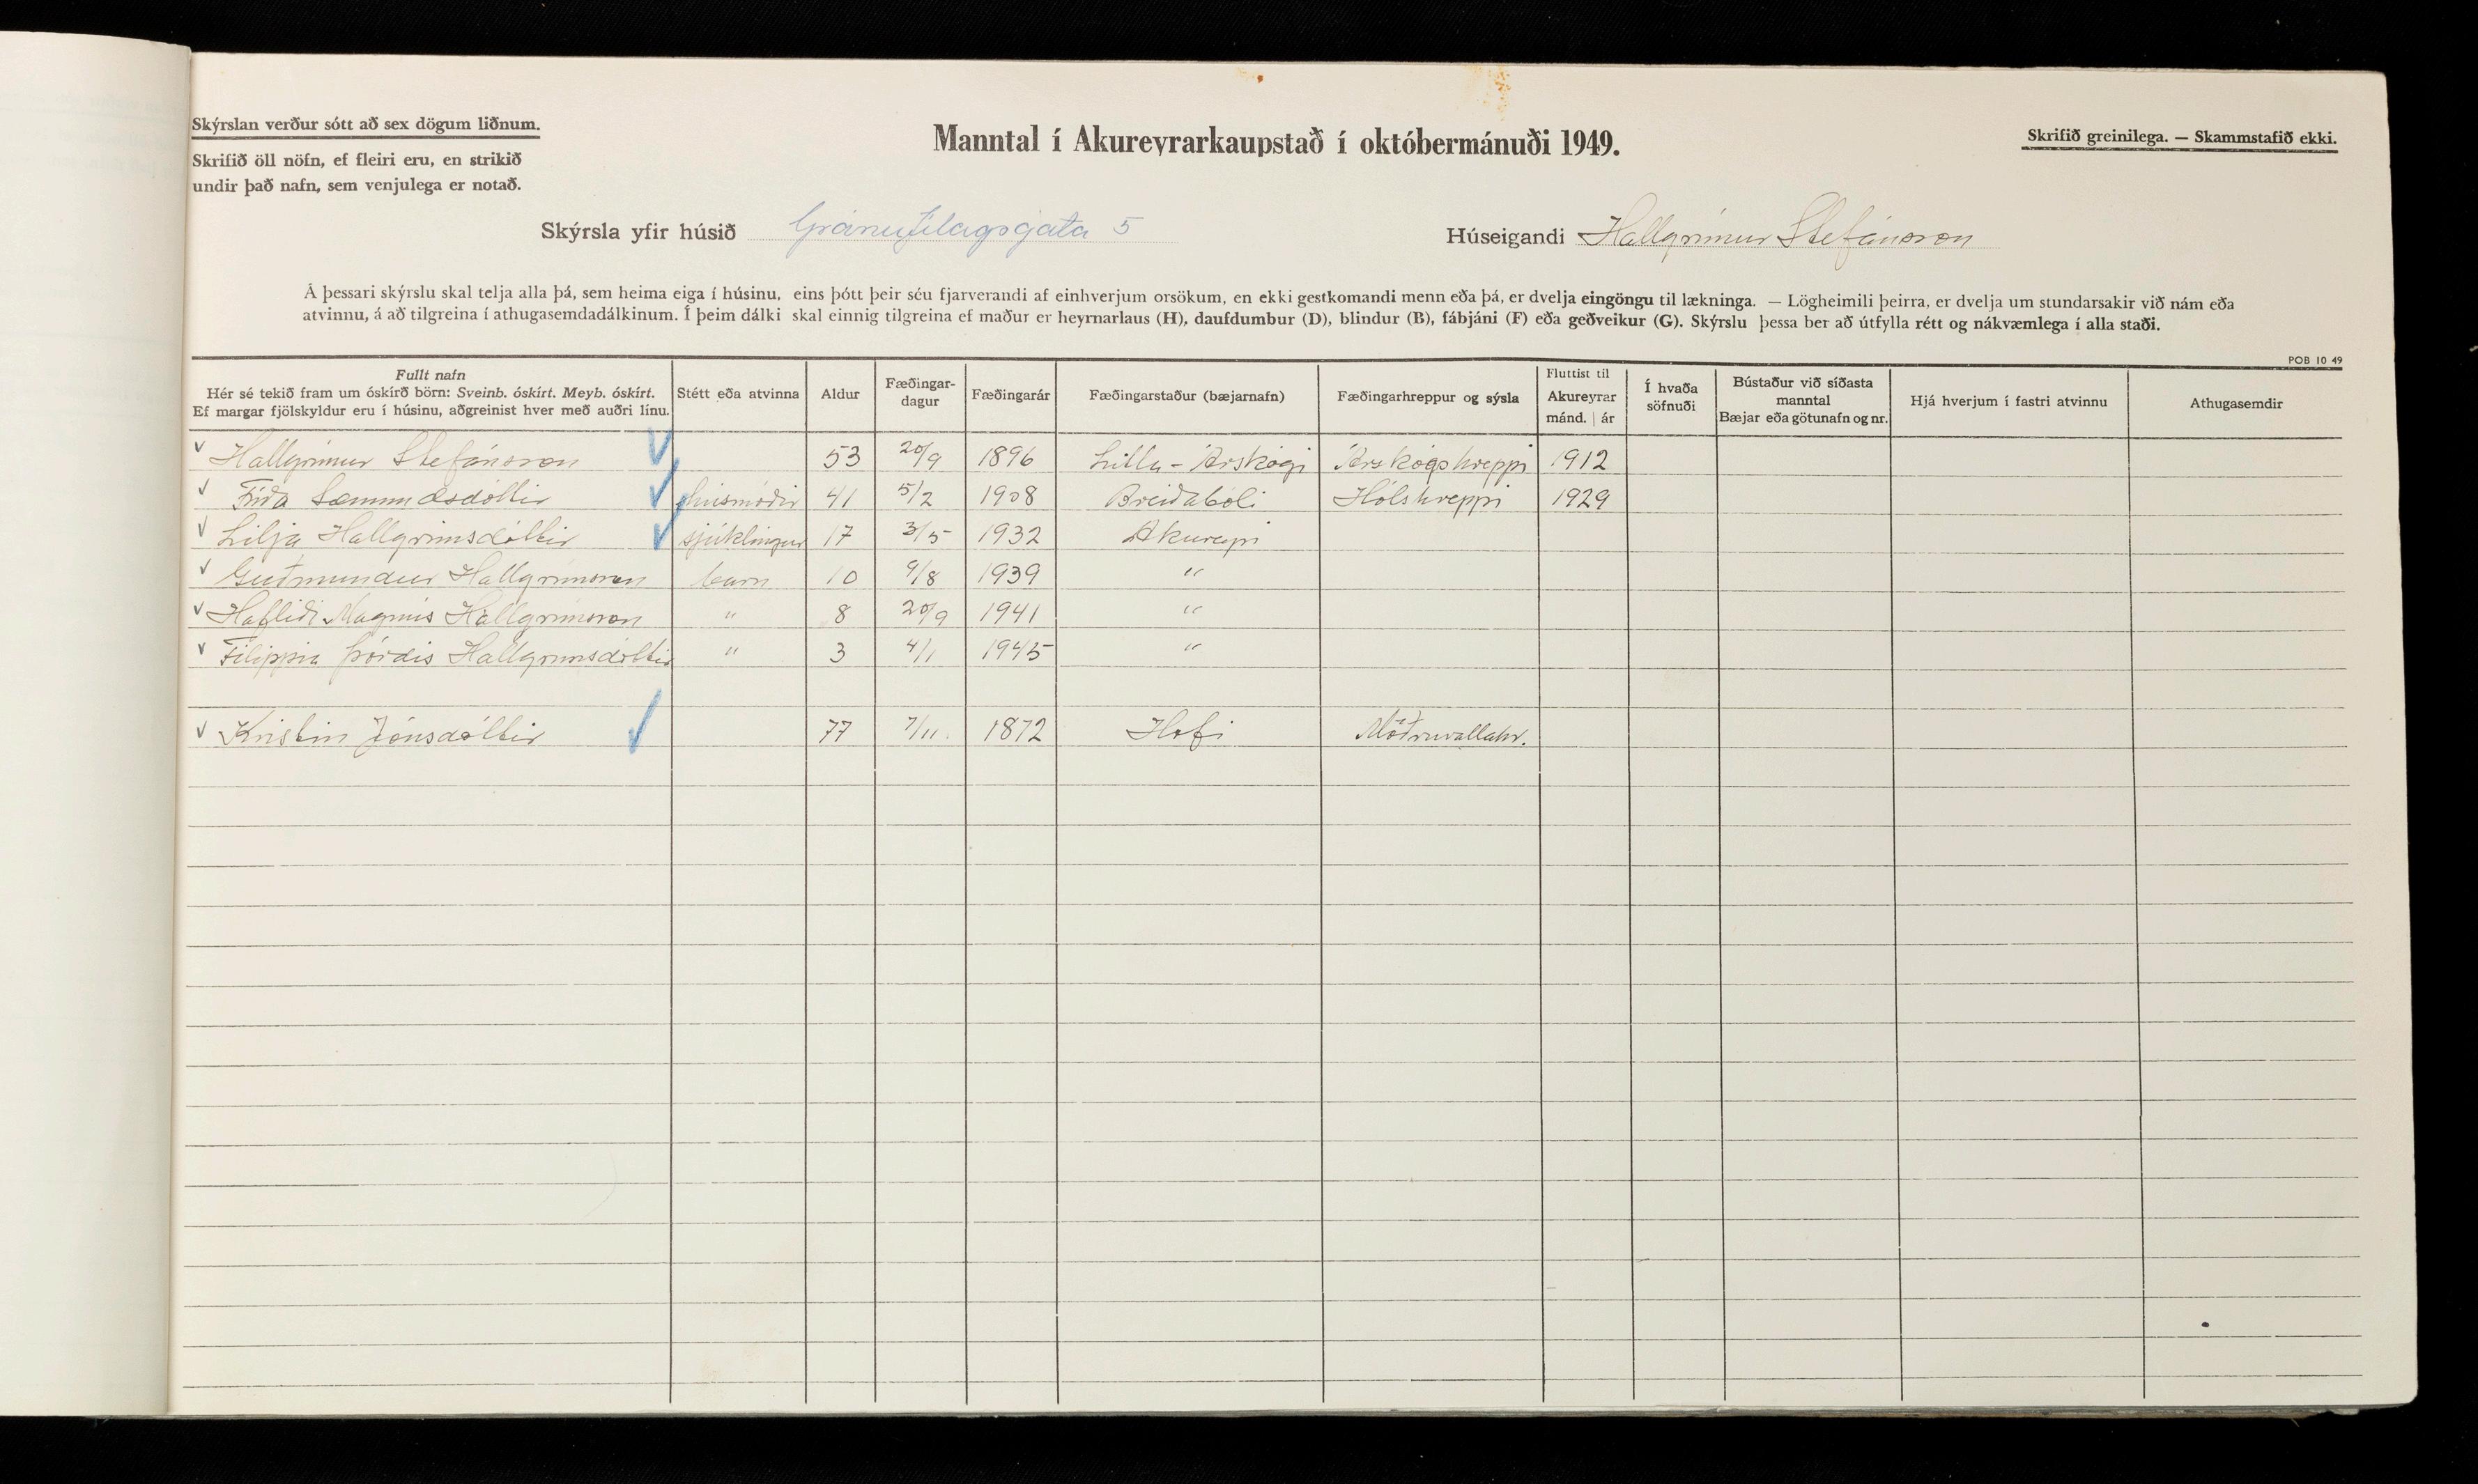 Skýrslan verður sótt að sex dögum liðnum.
Skrifið öll nöfn, ef fleiri eru, en strikið
undir það nafn, sem venjulega er notað.
Manntal í Akureyrarkaupstað í októbermánuði 1949.
Skrifið greinilega. — Skammstafið ekki.
Skýrsla yfir húsið Gránufélagsgata 5 Húseigandi Hallgrímur Stefánsson
Á þessari skýrslu skal telja alla þá, sem heima eiga í húsinu, eins þótt þeir séu fjarverandi af einhverjum orsökum, en ekki gestkomandi menn eða þá, er dvelja eingöngu til lækninga. — Lögheimili þeirra, er dvelja um stundarsakir við nám eða
atvinnu, á að tilgreina í athugasemdadálkinum. Í þeim dálki skal einnig tilgreina ef maður er heyrnarlaus (H), daufdumbur (D), blindur (B), fábjáni (F) eða geðveikur (G). Skýrslu þessa ber að útfylla rétt og nákvæmlega í alla staði.
POB 10 49
Fullt nafn
Hér sé tekið fram um óskírð börn: Sveinb. óskírt. Meyb. óskírt.
Ef margar fjölskyldur eru í húsinu, aðgreinist hver með auðri línu.
Stétt eða atvinna
Aldur
Fæðingar-
dagur
Fæðingarár
Fæðingarstaður (bæjarnafn)
Fæðingarhreppur og sýsla
Fluttist til
Akureyrar
mánd. | ár
Í hvaða
söfnuði
Bústaður við síðasta
manntal
Bæjar eða götunafn og nr.
Hjá hverjum í fastri atvinnu
Athugasemdir
Hallgrímur Stefánsson 53 20/9 1896 Litlu-Árskógi Árskógshreppi 1912
Fríða Sæmundsdóttir húsmóðir 41 5/2 1908 Breiðabóli Hólshreppi 1929
Lilja Hallgrímsdóttir sjúklingur 17 3/5 1932 Akureyri
Guðmundur Hallgrímsson barn 10 9/8 1939 "
Hafliði Magnús Hallgrímsson " 8 20/9 1941 "
Filippía Þórdís Hallgrímsdóttir " 3 4/1 1945 "
Kristín Jónsdóttir 77 7/11. 1872 Hofi Möðruvallahr.